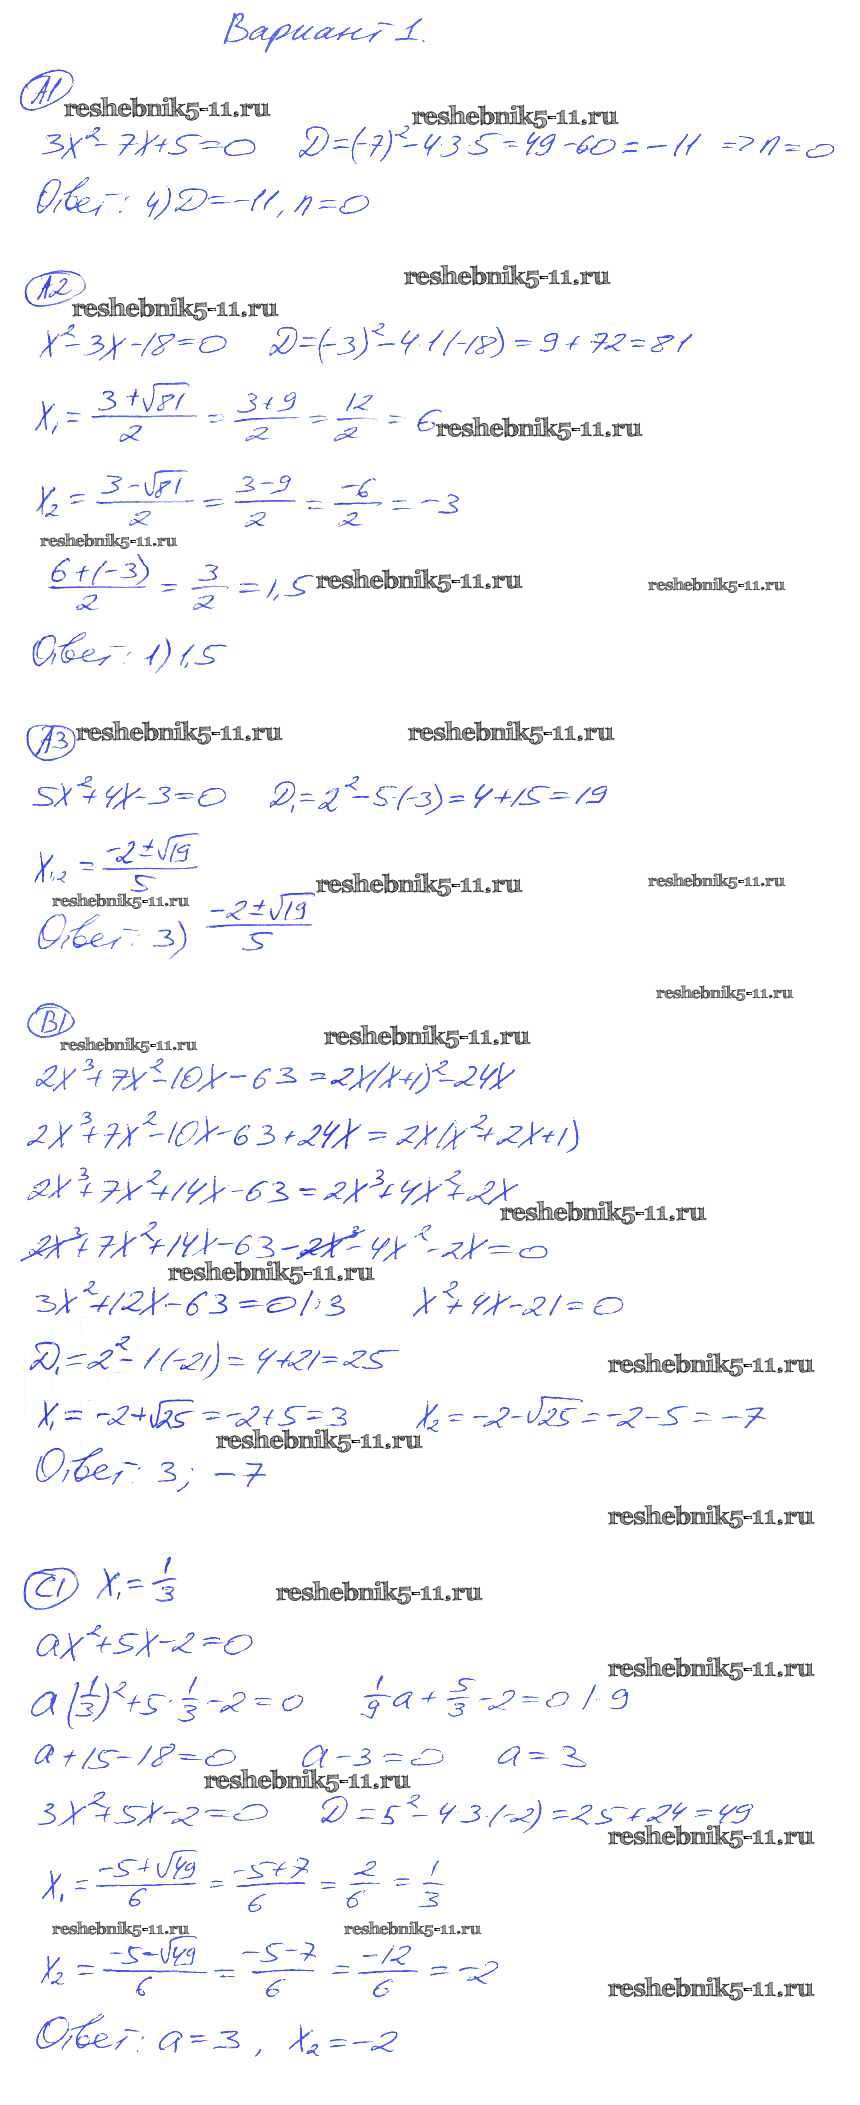 Вариант 1.
А1
reshebnik5-11.ru reshebnik5-11.ru
3x²-7x+5=0 D=(-7)²-4·3·5=49-60=-11 => n=0
Ответ: 4) D=-11, n=0
reshebnik5-11.ru
А2
reshebnik5-11.ru
x²-3x-18=0 D=(-3)²-4·1(-18)=9+72=81
x₁=(3+√81)/2=(3+9)/2=12/2=6
reshebnik5-11.ru
x₂=(3-√81)/2=(3-9)/2=-6/2=-3
reshebnik5-11.ru
(6+(-3))/2=3/2=1,5
reshebnik5-11.ru reshebnik5-11.ru
Ответ: 1) 1,5
А3 reshebnik5-11.ru reshebnik5-11.ru
5x²+4x-3=0 D₁=2²-5·(-3)=4+15=19
x₁,₂=(-2±√19)/5
reshebnik5-11.ru reshebnik5-11.ru reshebnik5-11.ru
Ответ: 3) (-2±√19)/5
reshebnik5-11.ru
В1
reshebnik5-11.ru reshebnik5-11.ru
2x³+7x²-10x-63=2x(x+1)²-24x
2x³+7x²-10x-63+24x=2x(x²+2x+1)
2x³+7x²+14x-63=2x³+4x²+2x
reshebnik5-11.ru
2x³+7x²+14x-63-2x³-4x²-2x=0
reshebnik5-11.ru
3x²+12x-63=0 |:3 x²+4x-21=0
D₁=2²-1(-21)=4+21=25
reshebnik5-11.ru
x₁=-2+√25=-2+5=3 x₂=-2-√25=-2-5=-7
reshebnik5-11.ru
Ответ: 3; -7
reshebnik5-11.ru
С1 x₁=1/3
reshebnik5-11.ru
ax²+5x-2=0
reshebnik5-11.ru
a(1/3)²+5·1/3-2=0 1/9a+5/3-2=0 |·9
a+15-18=0 a-3=0 a=3
reshebnik5-11.ru
3x²+5x-2=0 D=5²-4·3·(-2)=25+24=49
reshebnik5-11.ru
x₁=(-5+√49)/6=(-5+7)/6=2/6=1/3
reshebnik5-11.ru reshebnik5-11.ru
x₂=(-5-√49)/6=(-5-7)/6=-12/6=-2
reshebnik5-11.ru
Ответ: a=3, x₂=-2